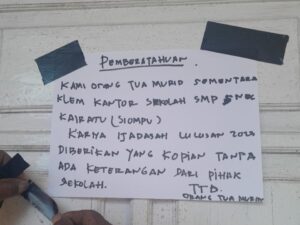 PEMBERATAHUAN.
KAMI ORONG TUA MURID SEMENTARA
KLEM KANTOR SEKOLAH SMP 5 NEG
KAIRATU (SIOMPU)
KARNA IJADASAH LULUSAN 2023
DIBERIKAN YANG KOPIAN TANPA
ADA KETERANGAN DARI PIHAK
SEKOLAH.
TTD.
ORANG TUA MURID